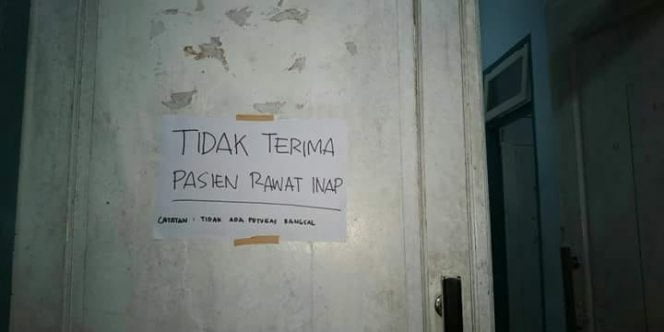 TIDAK TERIMA
PASIEN RAWAT INAP
CATATAN : TIDAK ADA PETUGAS BANGSAL